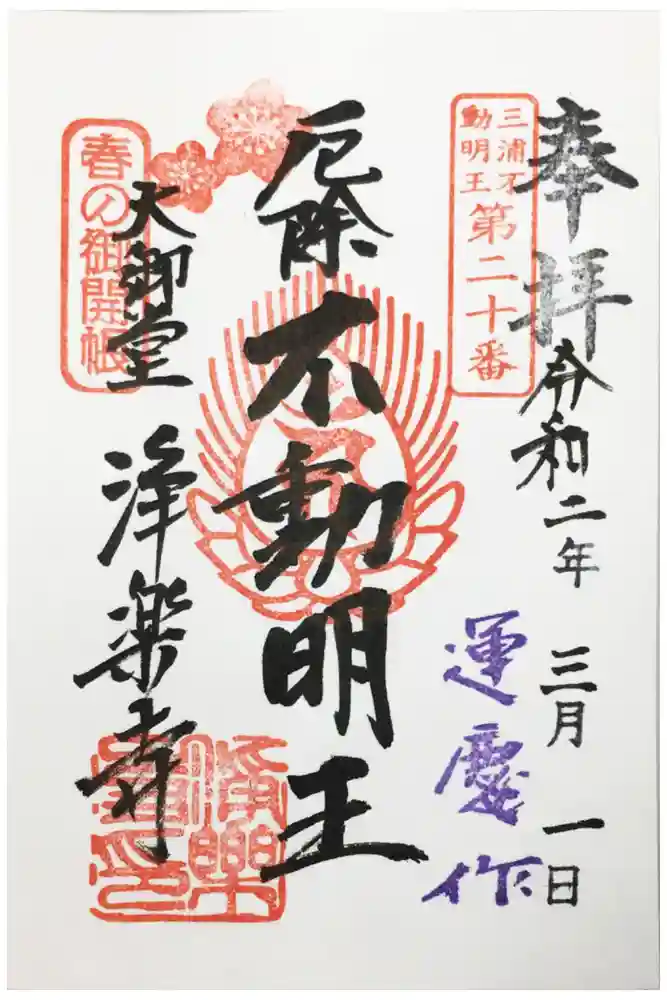 奉拝
令和二年 三月 一日
三浦不
動明王
第二十番
運慶作
厄除
不動明王
大御堂
浄楽寺
春の御開帳